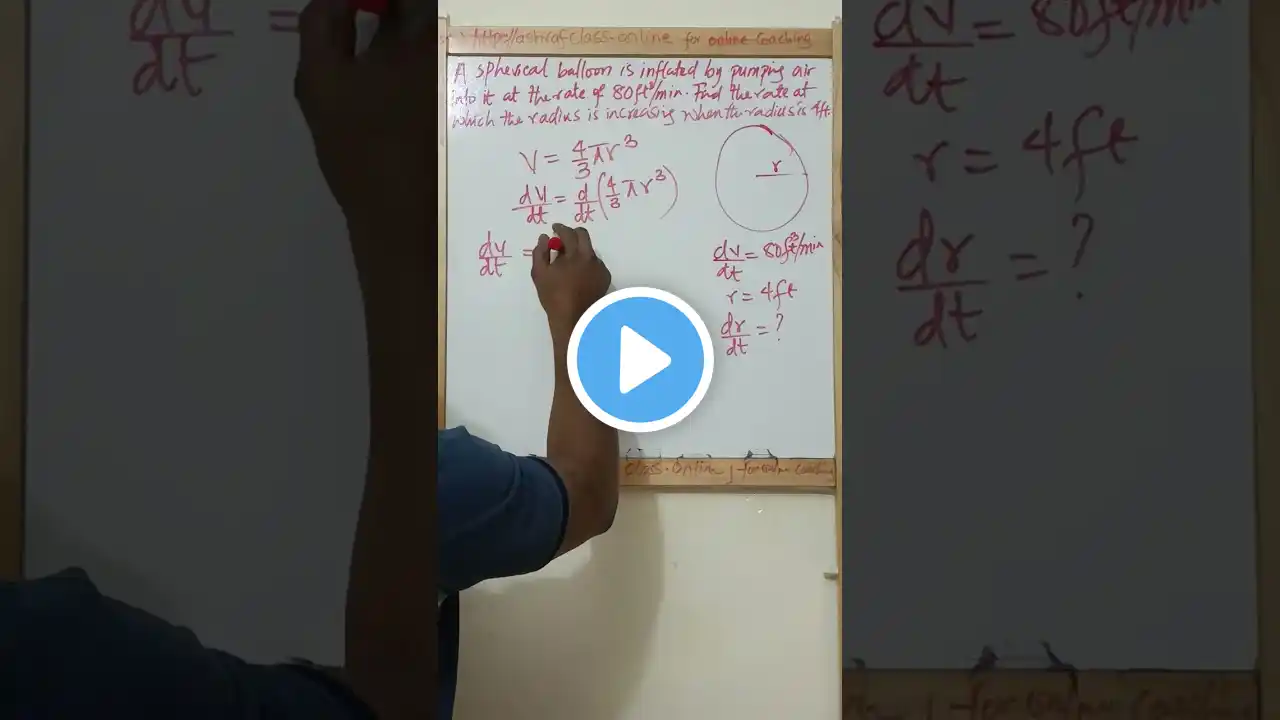 http://ashraf-class-online for online coaching
A spherical balloon is inflated by pumping air
into it at the rate of 80ft³/min. Find the rate at
which the radius is increasing when the radius is 4ft.
V = 4/3 πr³
dV/dt = d/dt (4/3 πr³)
dv/dt =
r
dv/dt = 80ft³/min
r = 4ft
dr/dt = ?
class-online, for online coaching
dv/dt =
dv/dt = 80ft/min
r = 4ft
dr/dt = ?